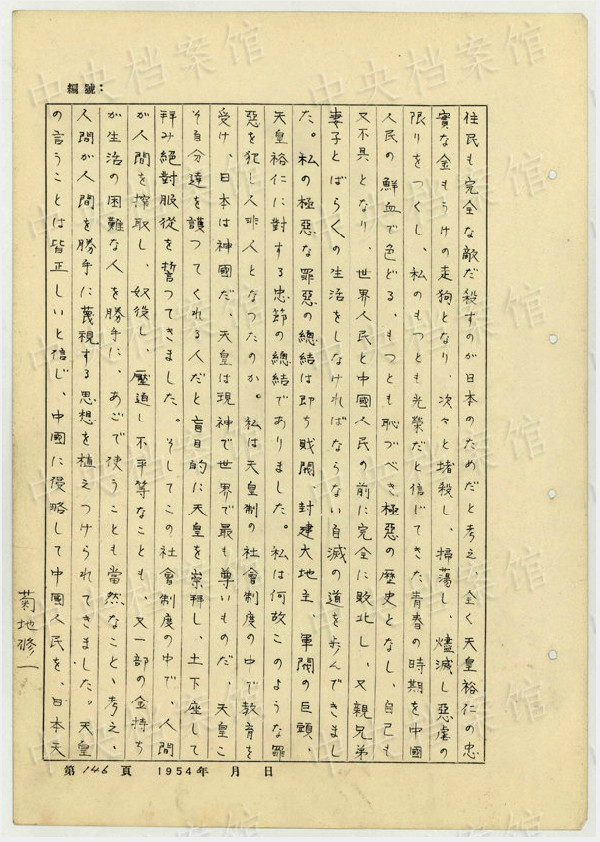 編號：
住民も完全な敵だ殺すのが日本のためだと考え、全く天皇裕仁の忠
實な金もうけの走狗となり、次々と堵殺し、掃蕩し、燼滅し惡虐の
限りをつくし、私のもつとも光榮だと信じてきた青春の時期を中國
人民の鮮血で色どる、もつとも恥づべき極惡の歴史となし、自己も
又不具となり、世界人民と中國人民の前に完全に敗北し、又親兄弟
妻子とばらばらの生活をしなければならない自滅の道を歩んできまし
た。私の極惡な罪惡の總結は即ち財閥、封建大地主、軍閥の巨頭、
天皇裕仁に對する忠節の總結でありました。私は何故このような罪
惡を犯し人非人となつたのか。私は天皇制の社會制度の中で教育を
受け、日本は神國だ、天皇は現神で世界で最も尊いものだ、天皇こ
そ自分達を護つてくれる人だと盲目的に天皇を崇拜し、土下座して
拜み絕對服從を誓つてきました。そしてこの社會制度の中で、人間
が人間を搾取し、奴役し、壓迫し不平等なことも、又一部の金持ち
が生活の困難な人を勝手に、あごで使うことも當然なことゝ考え、
人間が人間を勝手に蔑視する思想を植えつけられてきました。天皇
の言うことは皆正しいと信じ、中國に侵略して中國人民を、日本天
菊地修一
第 146 頁 1954年 月 日
中央档案馆